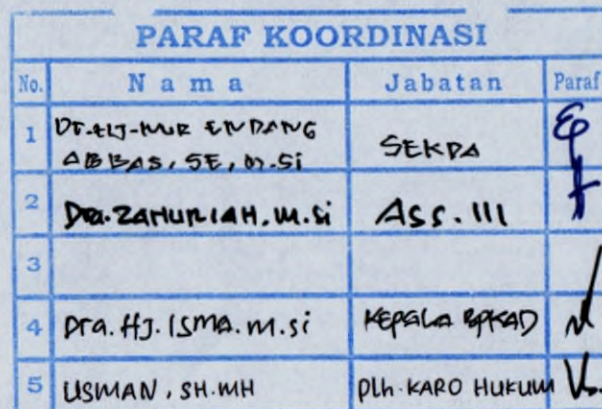 PARAF KOORDINASI
No. Nama Jabatan Paraf
1 Dr. Hj. NUR ENDANG
ABBAS, SE, M.Si SEKDA
2 Dra. ZANURIAH. M.Si ASS. III
3
4 Dra. HJ. ISMA. M.Si KEPALA BPKAD
5 USMAN, SH. MH Plh. KARO HUKUM